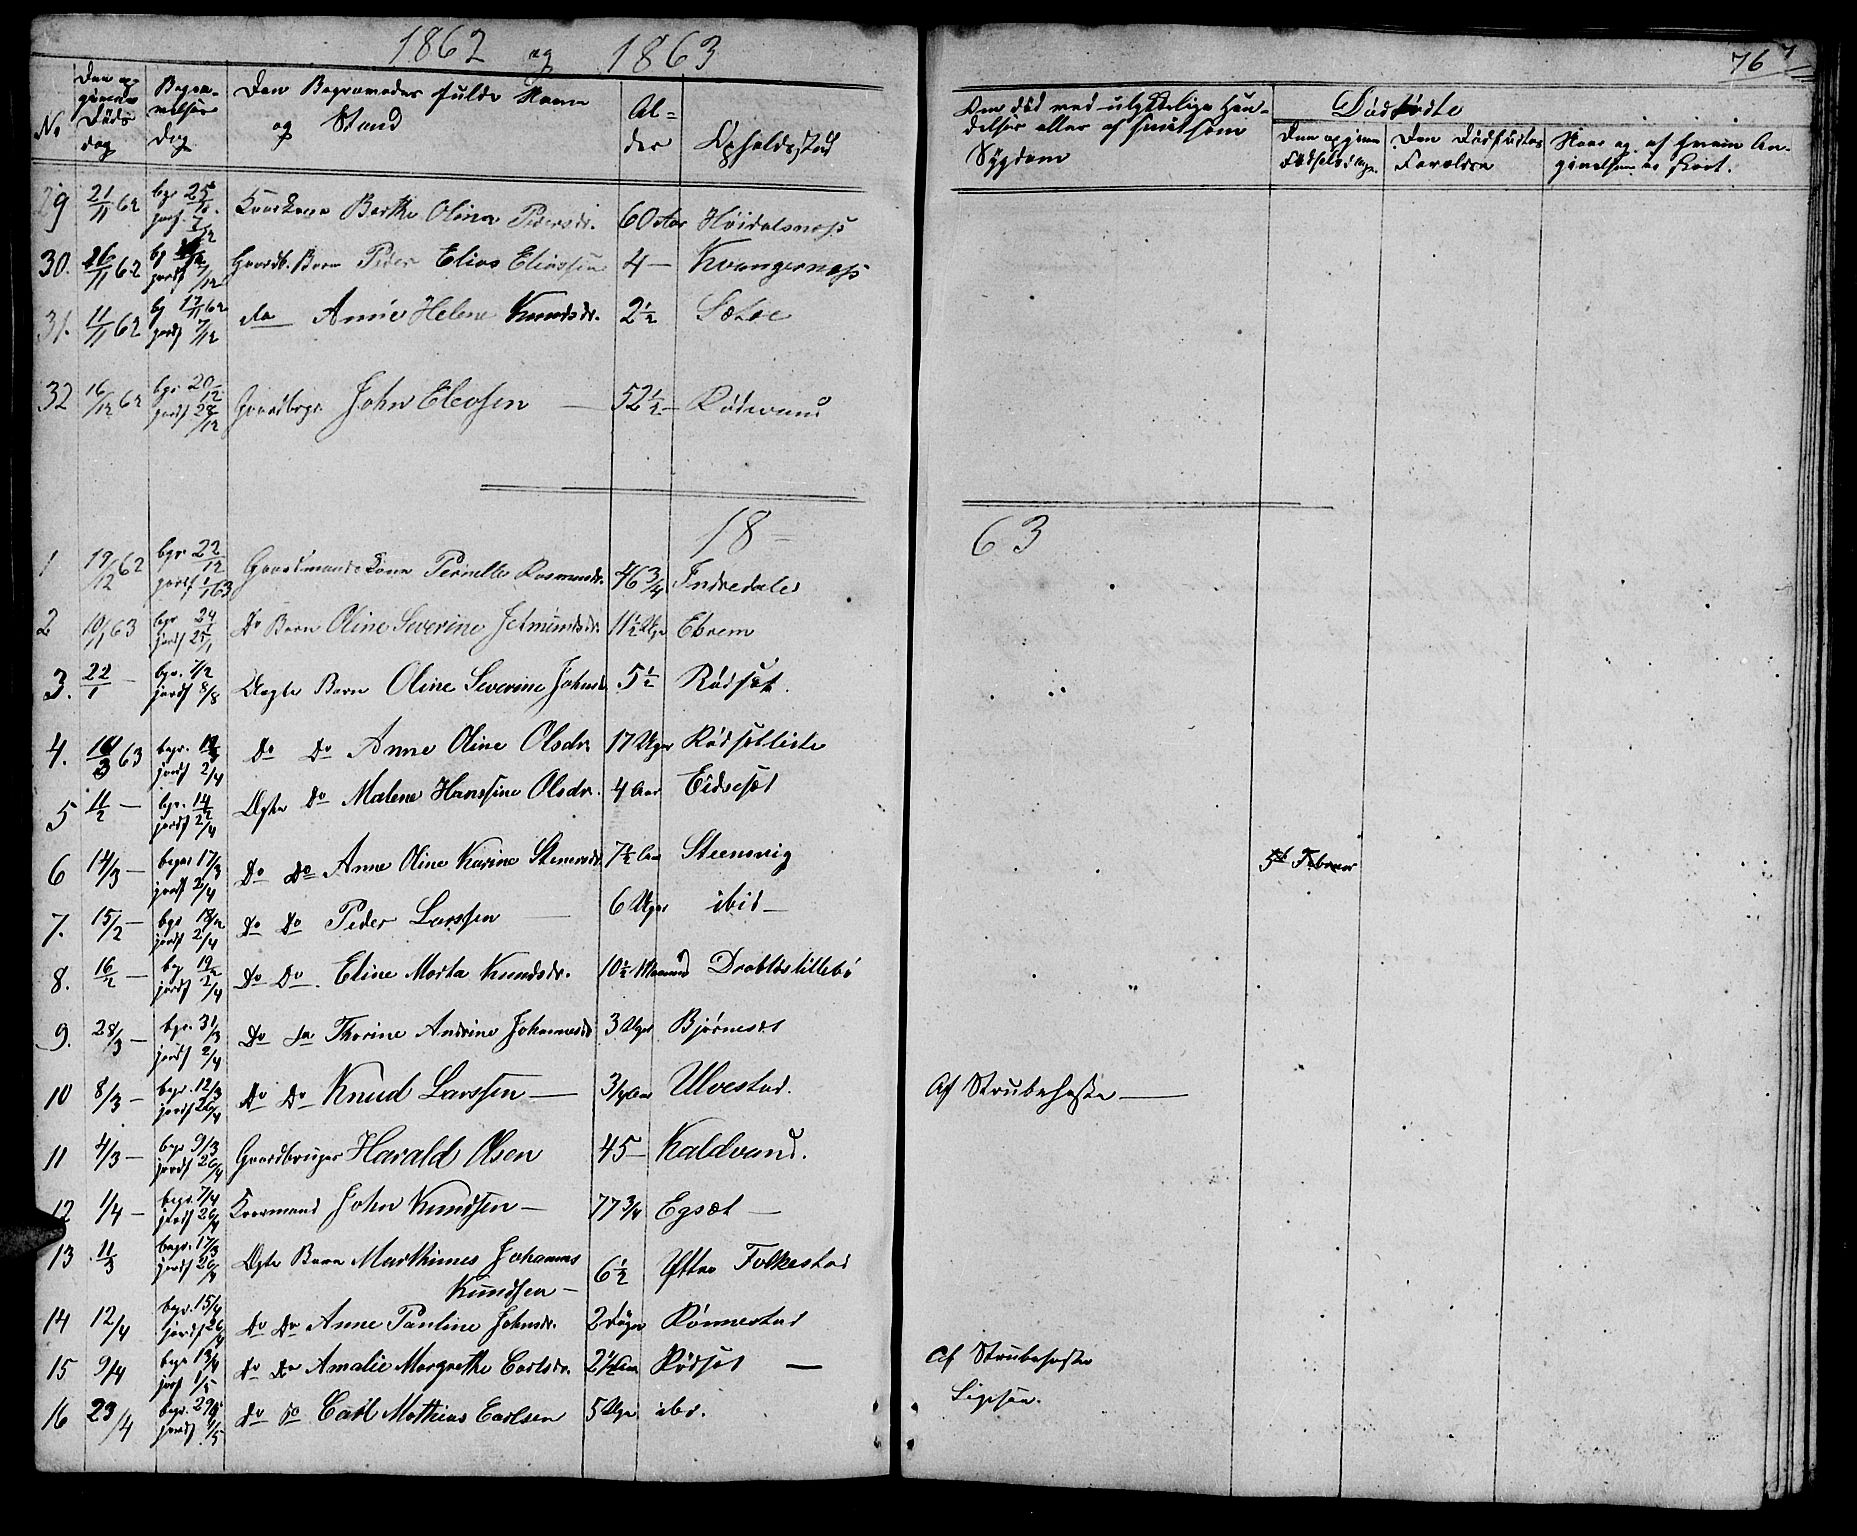 1862 og 1863
76
No
Den op-
givne
Døds
dag
Begra-
velses
Dag
Den Begravedes fulde Navn
og Stand
Al-
der
Opholdssted
Den død ved ulykkelige Hæn-
delser eller af smitsom
Sygdom
Dødfødte
Den opgivne
Den Dødfødtes
Forældre
Naar og af hvem An-
givelsen er skeet.
29 21/11 62 bgr 25/11 jords. 7/12 Berthe Olina Pedersdr. 60 Aar Høidalsness
30. 26/11 62 jords 7/12 Gaardb. Barn Peder Elias Eliassen 4 — Kvangerness
31. 11/11 62 bg 17/11 62 jords 7/12 do Anne Helene Knudsdr. 2½ Sætre
32 16/12 62 bgr 20/12 jords 28/12 Gaardbrgr. John Elevsen — 52½ — Rødvand
18 — 63
1 19/12 62 bgr 22/12 jords 1/1 63 Gaardmands Kone Pernille Rasmusdr. 46¾ Indredale
2 10/1 63 bgr 24/1 jords 25/1 Do Barn Oline Severine Jetmundsdr. 11½ Uge Ebrem
3. 22/1 — bgr. 7/2 jords 8/8 Uægte Barn Oline Severine Johnsd. 5½ Rødsæt.
4. 10/3 63 bgr. 12/3 jords 2/4 Do Do Anne Oline Olsdr. 17 Uger Rødsetlide
5 11/2 — bgr. 14/2 jords 2/4 Ægte Do Malene Hanssine Olsdr. 4 Aar Eidsesæt
6 14/3 — begr 17/3 jords 2/4 Do Do Anne Oline Karine Steenersdr. 7½ Aar Steensvig
5te Februar
7. 15/2 — bgr 18/2 jords 2/4 Do Do Peder Larssen — 6 Uger ibid —
8. 16/2 — bgr 19/2 jords 2/4 Do Do. Eline Marta Knudsdr. 10½ Maaned Drabløstillebø
9. 28/3 — bgr. 31/3 jords 2/4 Do Do Thorine Andrine Johannesd. 3 Uger Bjørnesæt
10 8/3 — bgr. 12/3 jords 26/4 Do Do Knud Larssen — 3/4 Aar Ulvestad. Af Strubehoste —
11 4/3 — bgr 9/3 jords 26/4 Gaardbruger Harald Olsen 45 — Kaldvand.
12 1/4 — begr. 7/4 jords 26/4 Kaarmand John Knudsen — 77¾ Egsæt —
13 11/3 begr. 17/3 jords 26/4 Ægte Barn Marthinus Johannes
Knudsen — 6½ Yttre Folkestad
14 12/4 bgr. 15/4 jords 26/4 Do Do Anne Pauline Johnsdr. 2 Døgn Rønnestad
15 9/4 bgr 13/4 jords 1/5 Do Do Amalie Margrethe Carlsdr. 2½ Aar Rødset — Af Strubehoste
16 23/4 begr. 29/4 jords 1/5 Do Do Carl Mathias Carlsen 5 Uger ibd. Ligesaa.